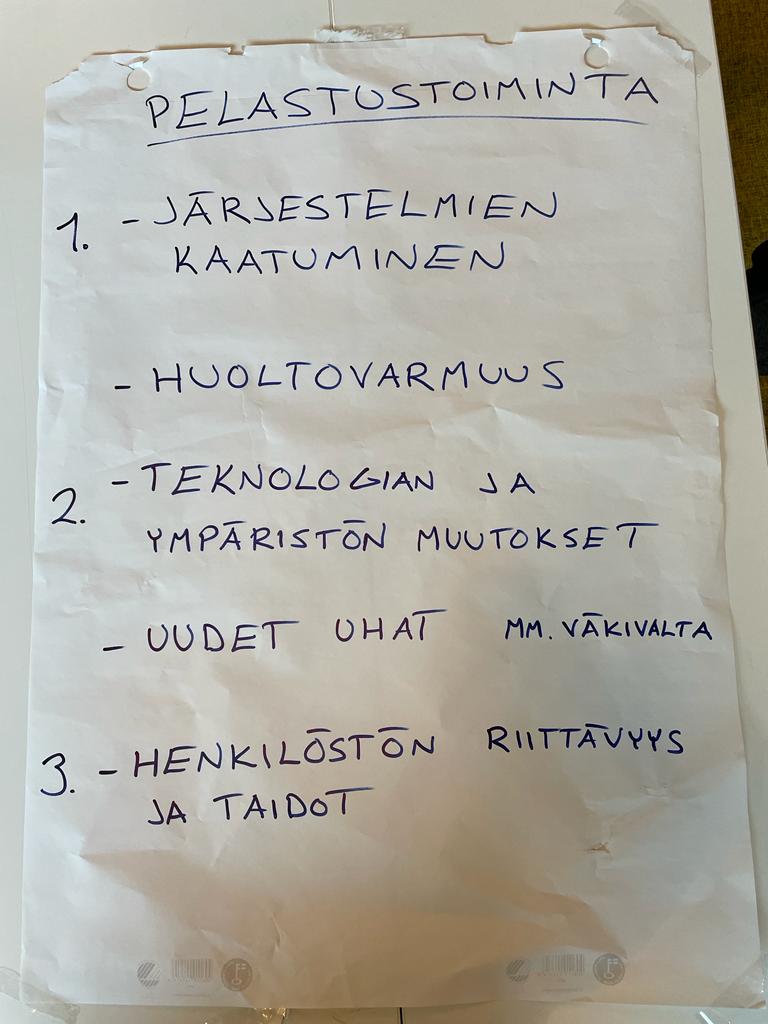 PELASTUSTOIMINTA
1. - JÄRJESTELMIEN
KAATUMINEN
- HUOLTOVARMUUS
2. - TEKNOLOGIAN JA
YMPÄRISTÖN MUUTOKSET
- UUDET UHAT MM. VÄKIVALTA
3. - HENKILÖSTÖN RIITTÄVYYS
JA TAIDOT